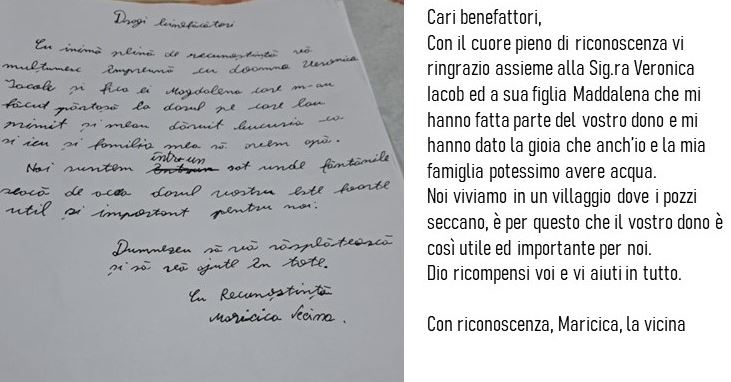 Dragi binefăcători
Cu inimă plină de recunoștință vă
mulțumesc împreună cu doamna Veronica
Iacob și fica ei Magdalena care m-au
făcut părtașă la darul pe care lau
primit și meau dăruit bucuria ca
și ieu și familia mea să avem apă.
Noi suntem intrun sat unde fântânile
seacă de aceea darul vostru este foarte
util și important pentru noi.
Dumnezeu să vă răsplătească
și să vă ajute în tote.
Cu Recunoștință
Maricica Vecina.
Cari benefattori,
Con il cuore pieno di riconoscenza vi
ringrazio assieme alla Sig.ra Veronica
Iacob ed a sua figlia Maddalena che mi
hanno fatta parte del vostro dono e mi
hanno dato la gioia che anch'io e la mia
famiglia potessimo avere acqua.
Noi viviamo in un villaggio dove i pozzi
seccano, è per questo che il vostro dono è
così utile ed importante per noi.
Dio ricompensi voi e vi aiuti in tutto.
Con riconoscenza, Maricica, la vicina